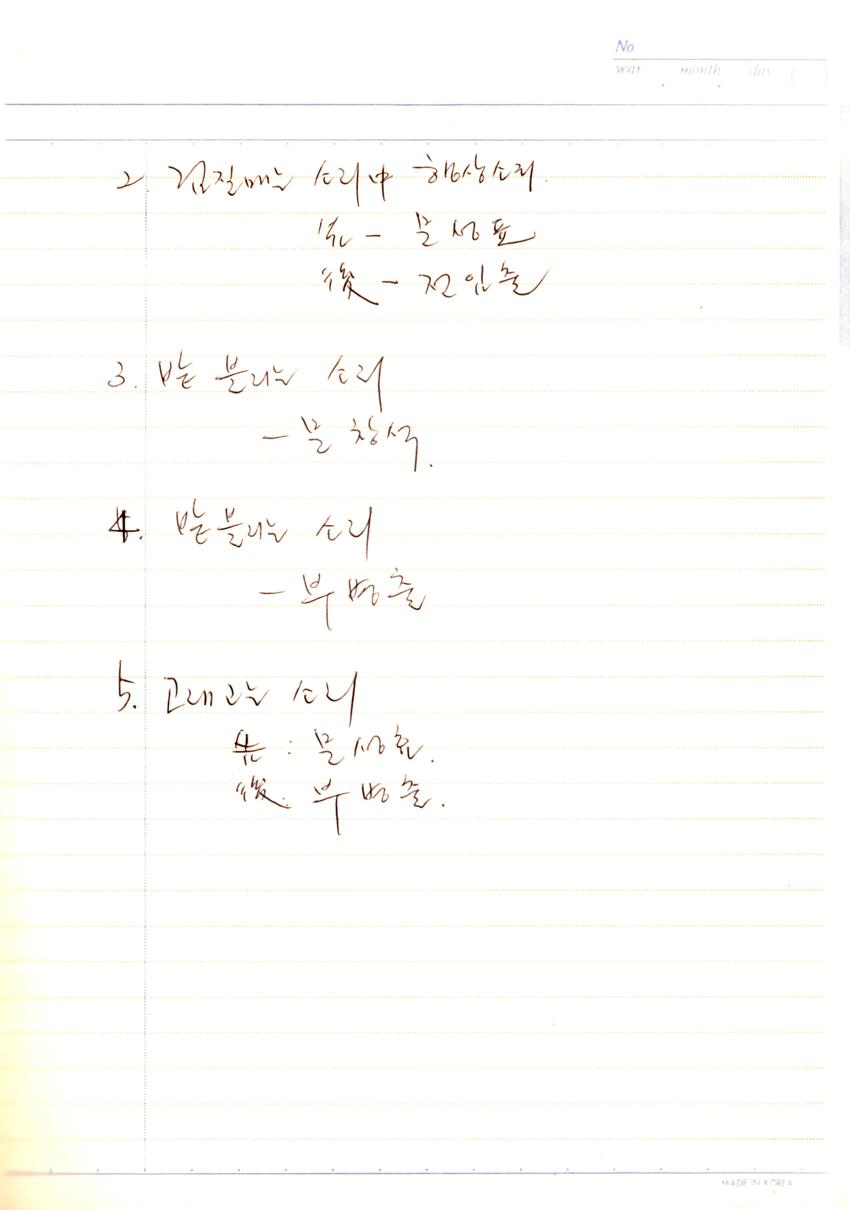 No.
war month day ( )
2. 김질매는 소리中 행상소리.
先 - 문성표
後 - 전임출
3. 밭 불리는 소리
- 문창석.
4. 밭 불리는 소리
- 부병출
5. 고래고는 소리
先 : 문성표.
後. 부병출.
MADE IN KOREA